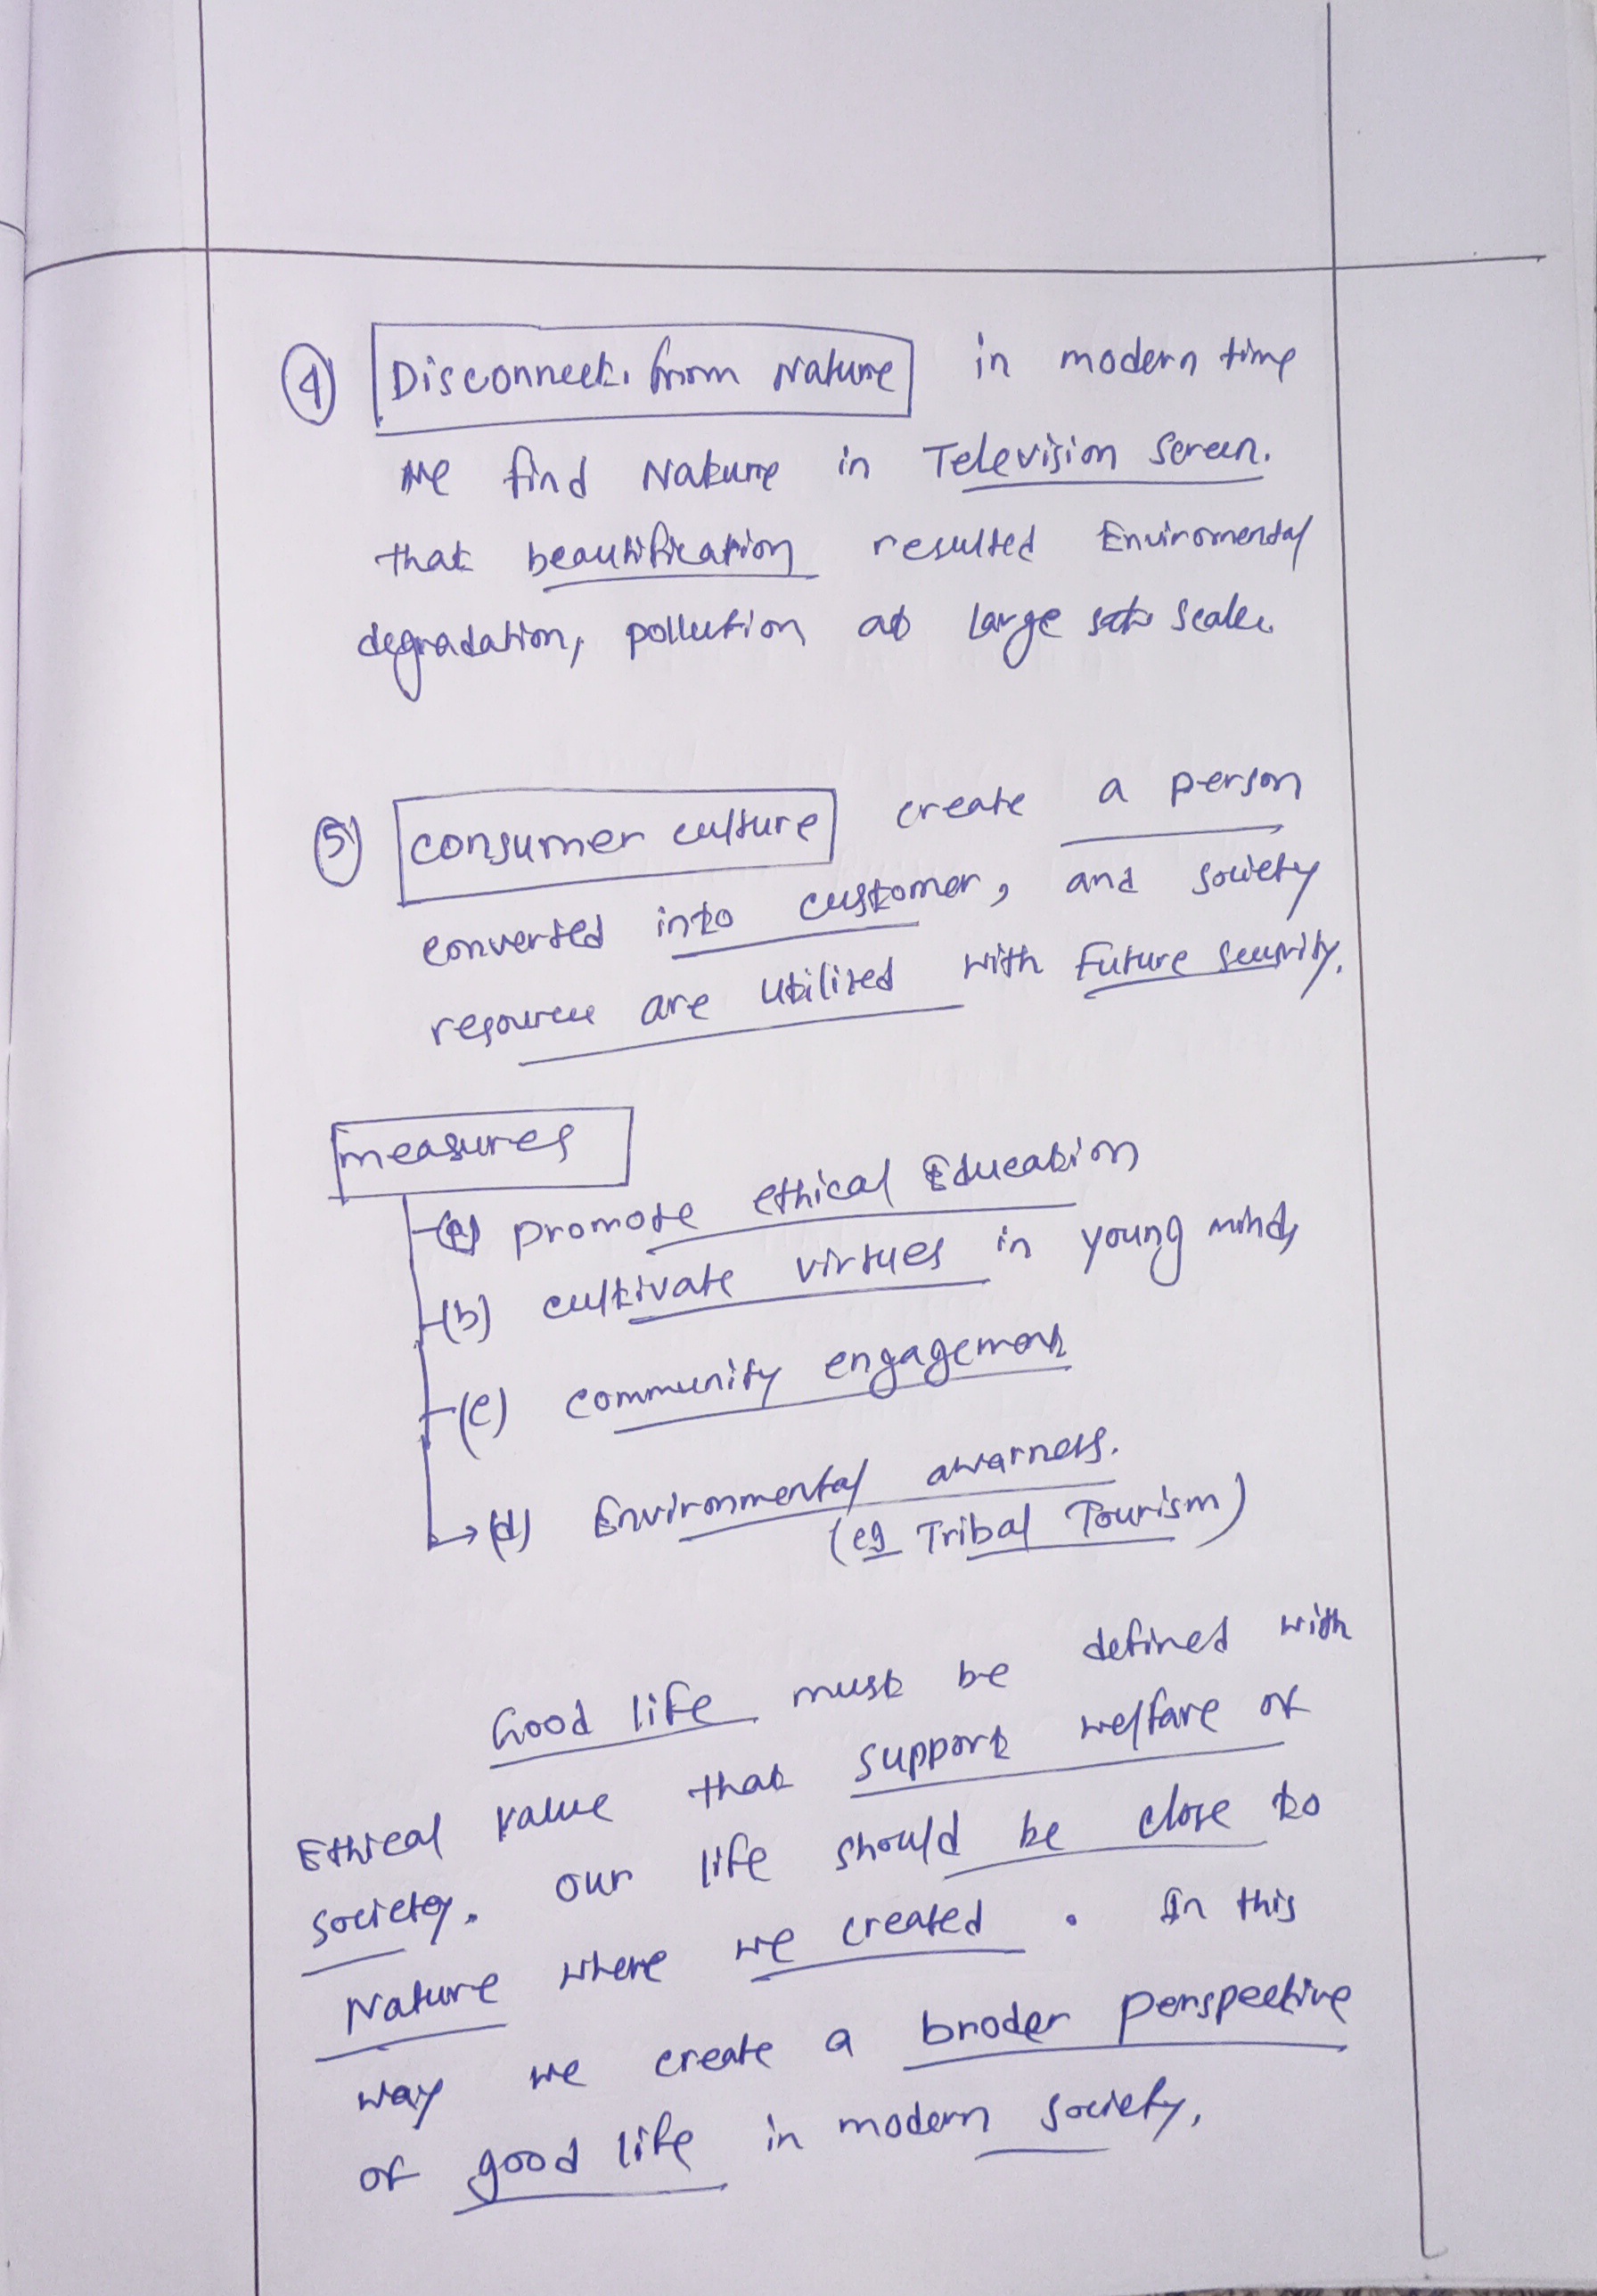 ④ Disconnect from Nature in modern time
we find Nature in Television screen.
that beautification resulted Enviromental
degradation, pollution at large scale.
⑤ consumer culture create a person
converted into customer, and society
resource are utilized with future security.
measures
(a) promote ethical Education
(b) cultivate virtues in young minds
(c) community engagement
(d) Environmental awarness.
(eg Tribal Tourism)
Good life must be defined with
Ethical value that support welfare of
society. our life should be close to
Nature where we created. In this
way we create a broder perspective
of good life in modern society.